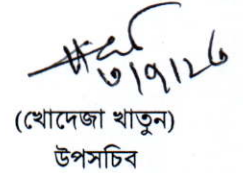 ৩/৭/২৫
(খোদেজা খাতুন)
উপসচিব